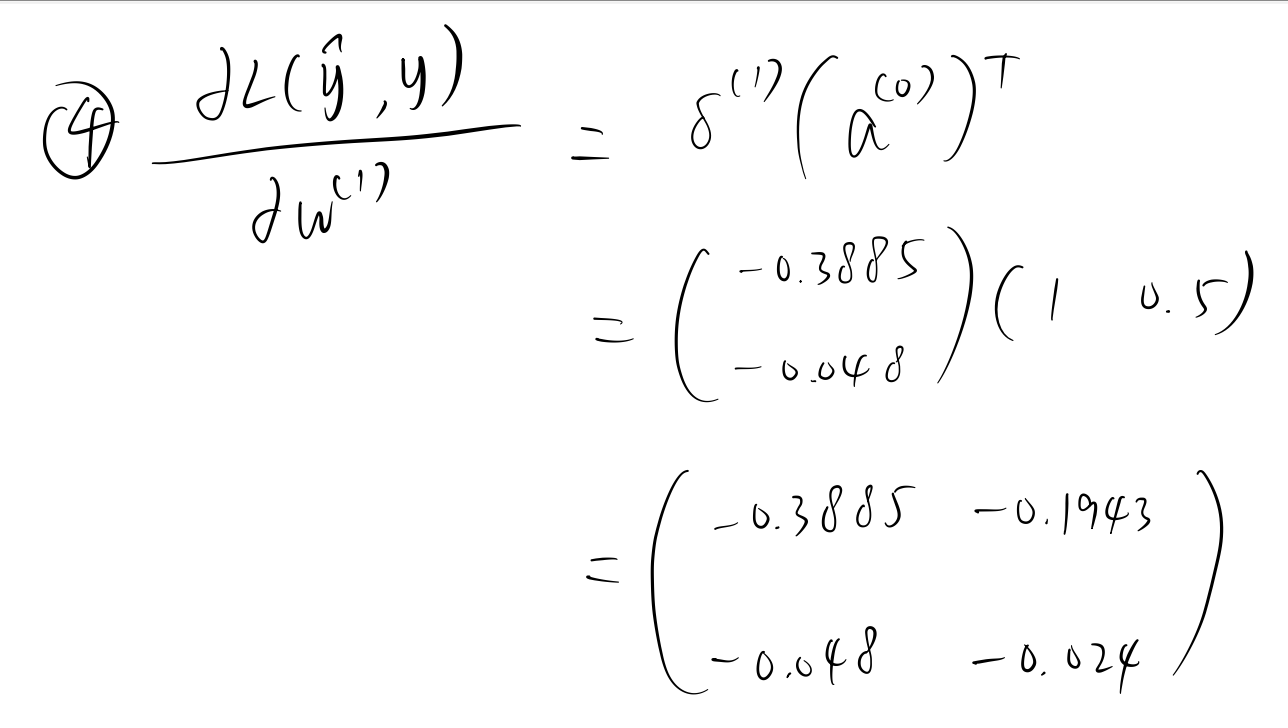 ④ ∂L(ŷ,y) / ∂w^(1) = δ^(1) (a^(0))^T
= (-0.3885 ; -0.048) (1 0.5)
= (-0.3885 -0.1943 ; -0.048 -0.024)